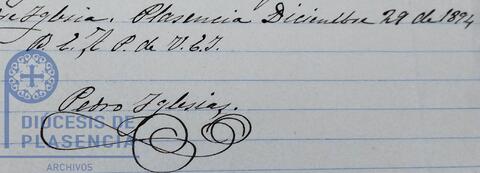 Iglesia. Plasencia Diciembre 29 de 1894
B. E. A. P. de V. E. I.
Pedro Iglesias.
DIÓCESIS DE
PLASENCIA
ARCHIVOS